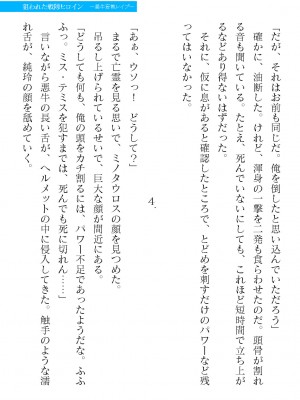 狙われた戦隊ヒロイン
「だが、それはお前も同じだ。俺を倒したと思い込んでいただろう」
確かに、油断した。けれど、渾身の一撃を二発も食らわせたのだ。頭骨が割れ
る音も聞いている。たとえ、死んでいないにしても、これほど短時間で立ち上が
るなどあり得ないはずだった。
それに、仮に息があると確認したところで、とどめを刺すだけのパワーなど残
ってはいなかった。
4
「あぁ、ウソっ！　どうして？」
まるで亡霊を見る思いで、ミノタウロスの顔を見つめた。
吊るし上げられているせいで、巨大な顔が間近にある。
「どうしても何も、俺の頭をカチ割るには、パワー不足であったようだな。ふふ
ふっ。ミス・テミスを犯すまでは、死んでも死に切れん……」
言いながら悪牛の長い舌が、ヘルメットの中に侵入してきた。触手のような濡
れ舌が、純玲の顔を舐めていく。